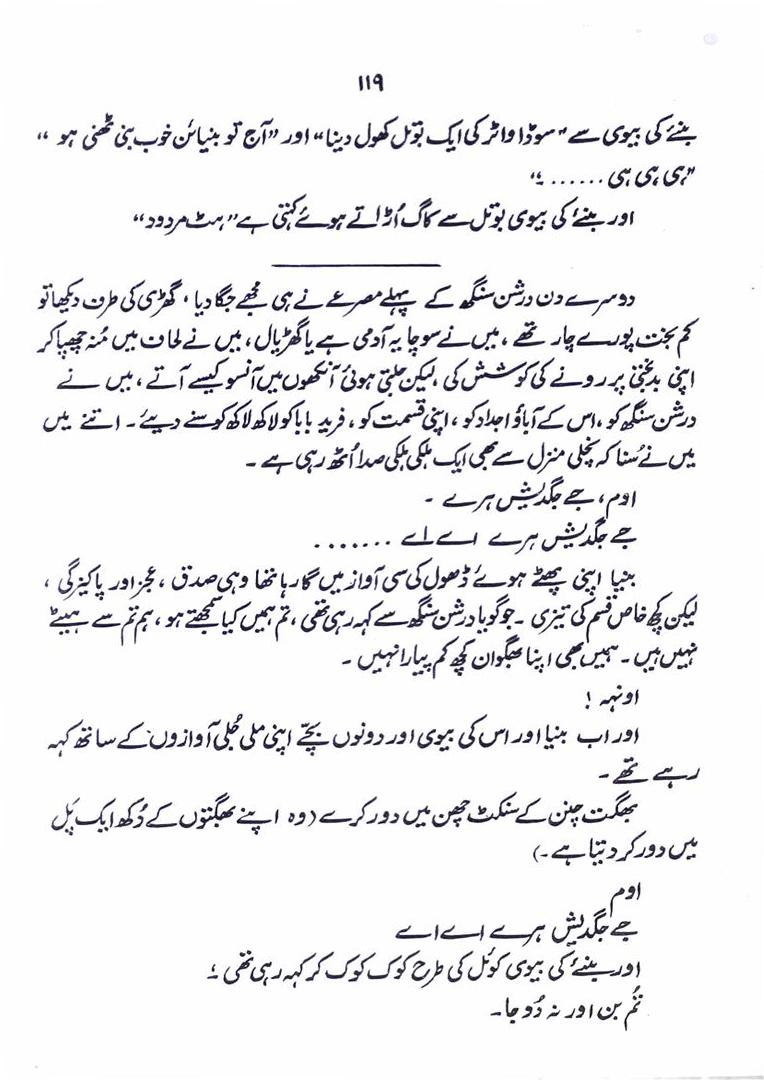 ۱۱۹
بنئے کی بیوی سے "سوڈا واٹر کی ایک بوتل کھول دینا" اور "آج تو بنیائن خوب بنی ٹھنی ہو"
"ہی ہی ہی ......؛"
اور بنئے کی بیوی بوتل سے کاگ اُڑاتے ہوئے کہتی ہے "ہٹ مردود"
دوسرے دن درشن سنگھ کے پہلے مصرعے نے ہی مجھے جگا دیا، گھڑی کی طرف دیکھا تو
کم بخت پورے چار تھے، میں نے سوچا یہ آدمی ہے یا گھڑیال، میں نے لحاف میں مُنہ چھپا کر
اپنی بدبختی پر رونے کی کوشش کی، لیکن جلتی ہوئی آنکھوں میں آنسو کیسے آتے، میں نے
درشن سنگھ کو، اس کے آباؤ اجداد کو، اپنی قسمت کو، فرید بابا کو لاکھ لاکھ کوسنے دیئے۔ اتنے میں
میں نے سُنا کہ نچلی منزل سے بھی ایک ہلکی ہلکی صدا اُٹھ رہی ہے۔
اوم، جے جگدیش ہرے ۔
جے جگدیش ہرے اے اے .......
بنیا اپنی پھٹے ہوئے ڈھول کی سی آواز میں گا رہا تھا وہی صدق، عجز اور پاکیزگی،
لیکن کچھ خاص قسم کی تیزی ۔ جو گویا درشن سنگھ سے کہہ رہی تھی، تم ہمیں کیا سمجھتے ہو، ہم تم سے ہیٹے
نہیں ہیں۔ ہمیں بھی اپنا بھگوان کچھ کم پیارا نہیں۔
اونہہ !
اور اب بنیا اور اس کی بیوی اور دونوں بچّے اپنی ملی جُلی آوازوں کے ساتھ کہہ
رہے تھے ۔
بھگت جنن کے سنکٹ چھن میں دور کرے (وہ اپنے بھگتوں کے دُکھ ایک پَل
میں دور کر دیتا ہے۔)
اوم
جے جگدیش ہرے اے اے
اور بنئے کی بیوی کوئل کی طرح کوک کوک کر کہہ رہی تھی ؛
تُم بن اور نہ دُوجا۔